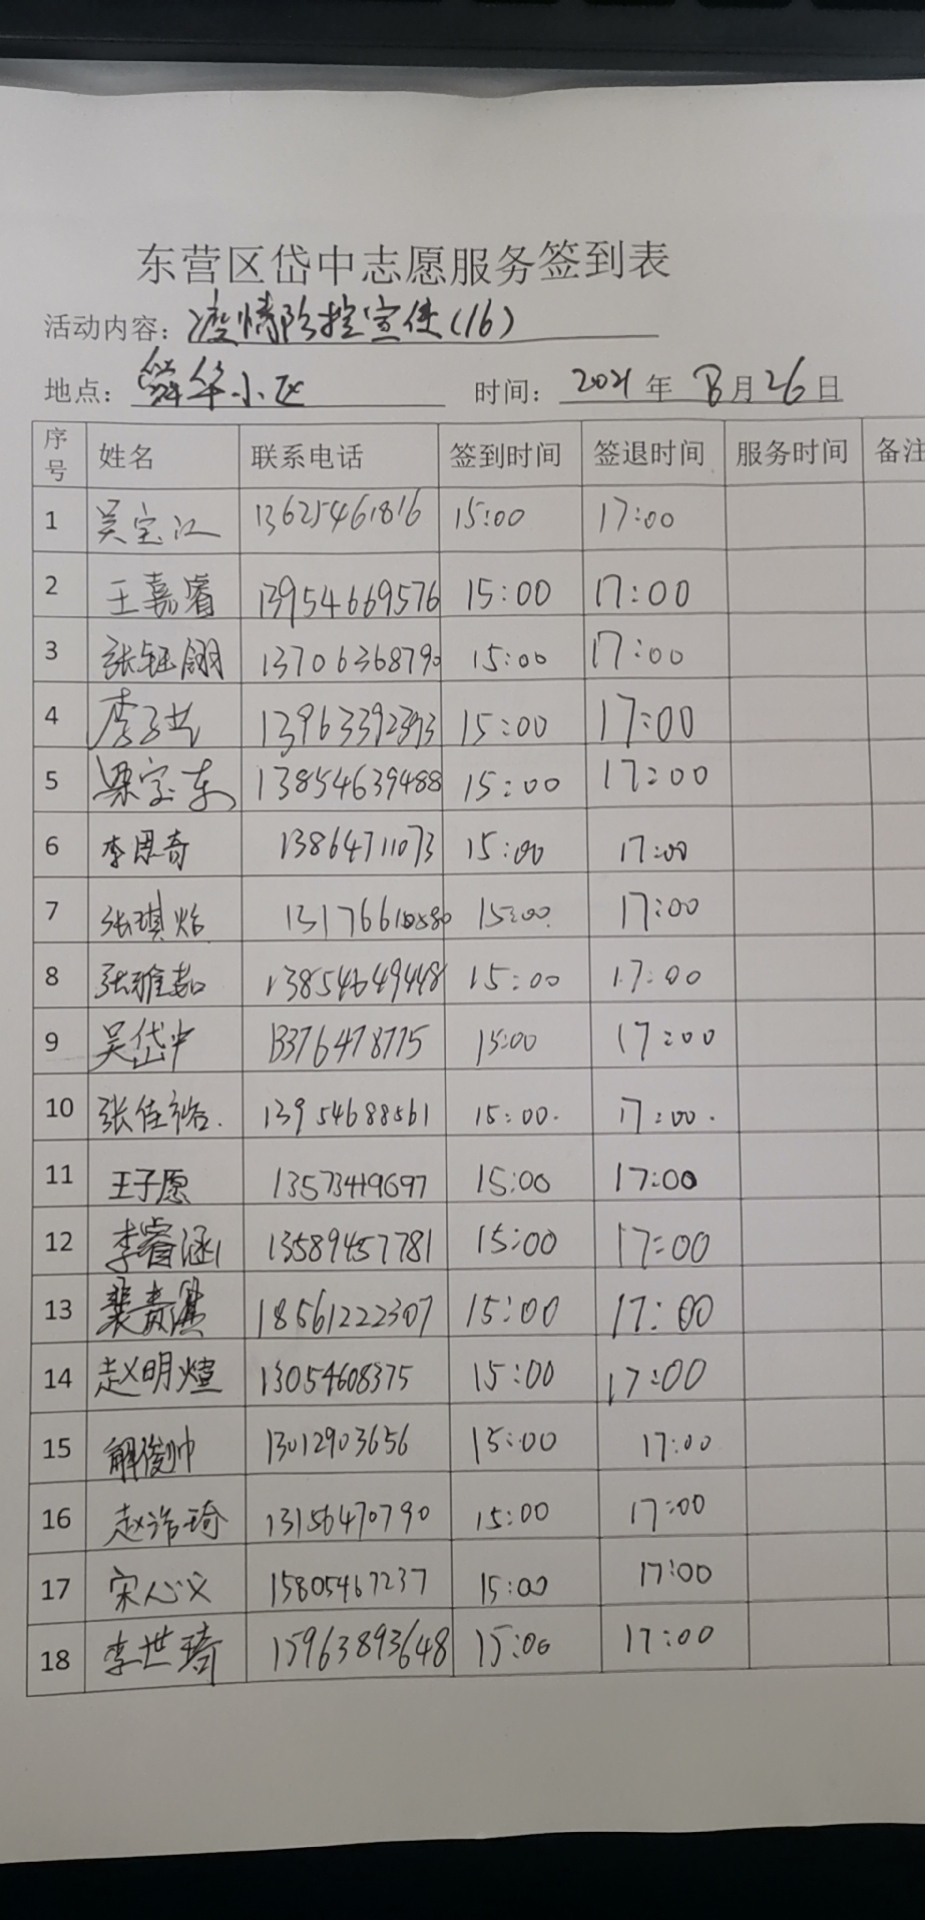 东营区岱中志愿服务签到表
活动内容：疫情防控宣传（16）
地点：舜华小区 时间：2021年8月26日
序号 姓名 联系电话 签到时间 签退时间 服务时间 备注
1 吴宝江 13625461816 15:00 17:00
2 王嘉睿 13954669576 15:00 17:00
3 张钰翎 13706368790 15:00 17:00
4 15:00 17:00
5 梁宝东 13854639488 15:00 17:00
6 李恩奇 13864711073 15:00 17:00
7 张琪焓 15:00 17:00
8 张雅茹 13854649448 15:00 17:00
9 吴岱中 13376478775 15:00 17:00
10 张佳裕. 13954688561 15:00. 17:00.
11 王子愿 13573419697 15:00 17:00
12 李睿涵 13589457781 15:00 17:00
13 18561222307 15:00 17:00
14 赵明煊 13054608375 15:00 17:00
15 解俊帅 13012903656 15:00 17:00
16 赵浩琦 13156470790 15:00 17:00
17 宋心义 15805467237 15:00 17:00
18 李世琦 15963893648 15:00 17:00